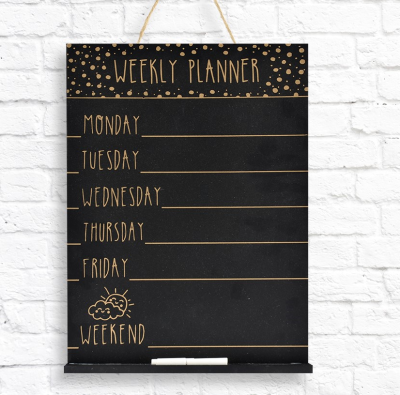 WEEKLY PLANNER
MONDAY
TUESDAY
WEDNESDAY
THURSDAY
FRIDAY
WEEKEND